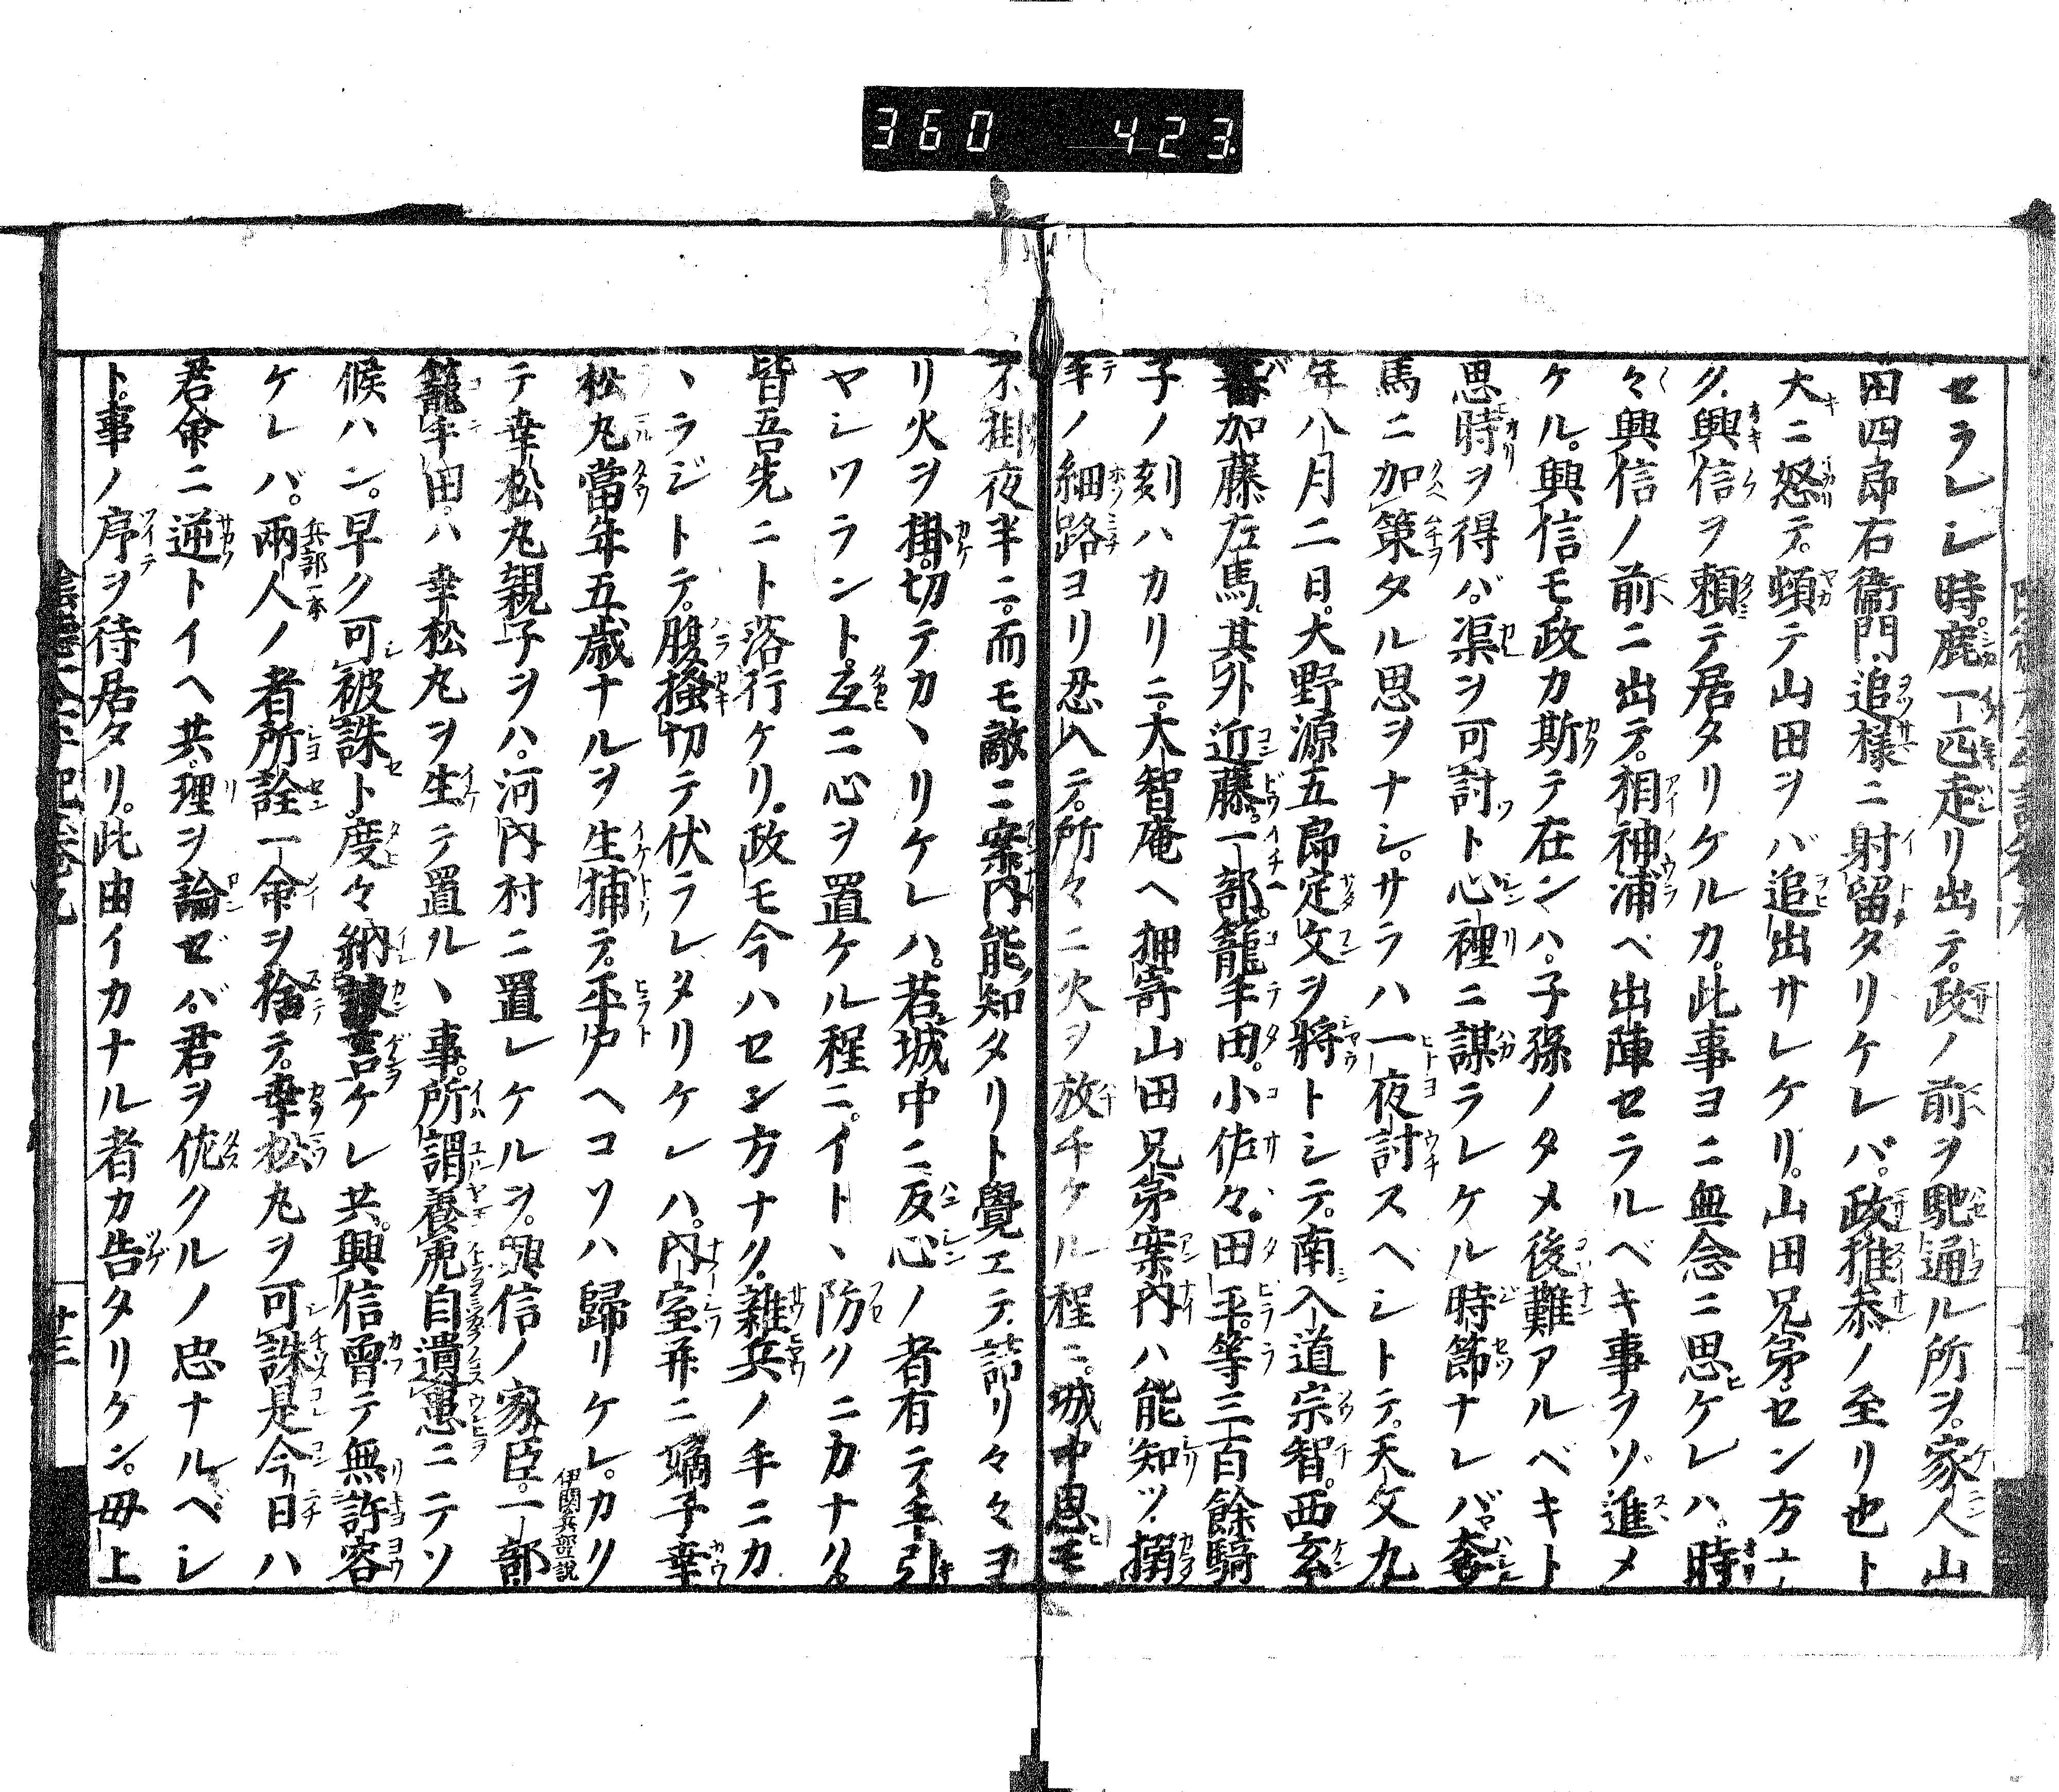 360 423
セラレシ時。鹿一匹走リ出テ。政ノ前ヲ馳通ル所ヲ。家人山
田四郎右衞門追樣ニ射留タリケレバ。政推參ノ至リ也ト
大ニ怒テ。頓テ山田ヲバ追出サレケリ。山田兄弟セン方ナ
ク。興信ヲ頼テ居タリケルカ。此事ヨニ無念ニ思ケレハ。時
々興信ノ前ニ出テ。相神浦ヘ出陣セラルベキ事ヲゾ進メ
ケル。興信モ。政カ斯テ在ンハ。子孫ノタメ後難アルベキト
思。時ヲ得バ。渠ヲ可討ト心裡ニ謀ラレケル時節ナレバ。奔
馬ニ加策タル思ヲナシ。サラハ一夜討スヘシトテ。天文九
年八月二日。大野源五郎定文ヲ將トシテ。南入道宗智。西玄
蕃加藤左馬。其外近藤。一部。籠手田。小佐々。田平。等三百餘騎
子ノ刻ハカリニ。大智庵ヘ押寄山田兄弟案内ハ能知ツ。搦
手ノ細路ヨリ忍入テ。所々ニ火ヲ放チケル程ニ。城中思モ
不狙夜半ニ。而モ敵ニ案内能知タリト覺エテ。詰リ々々ヨ
リ火ヲ掛。切テカヽリケレハ。若城中ニ反心ノ者有テ手引
ヤシツラント。互ニ心ヲ置ケル程ニ。イトヽ防クニカナク。
皆吾先ニト落行ケリ。政モ今ハセン方ナク。雜兵ノ手ニカ
ヽラジトテ。腹搔切テ伏ラレタリケレハ。内室并ニ嫡子幸
松丸當年五歳ナルヲ生捕テ。平戸ヘコソハ歸リケレ。カク
伊關兵部一說
テ幸松丸親子ヲハ。河内村ニ置レケルヲ。興信ノ家臣。一部
籠手田。ハ幸松丸ヲ生テ置ルヽ事。所謂養虎自遺患ニテソ
候ハン。早ク可被誅ト。度々納諫言ケレ共。興信曾テ無許容
ケレバ。兩人ノ者所詮一命ヲ捨テ。幸松丸ヲ可誅是今日ハ
兵部一本
君命ニ逆トイヘ共。理ヲ論ゼバ。君ヲ佐クルノ忠ナルベシ
ト。事ノ序ヲ待居タリ。此由イカナル者カ告タリケン。母上
十三